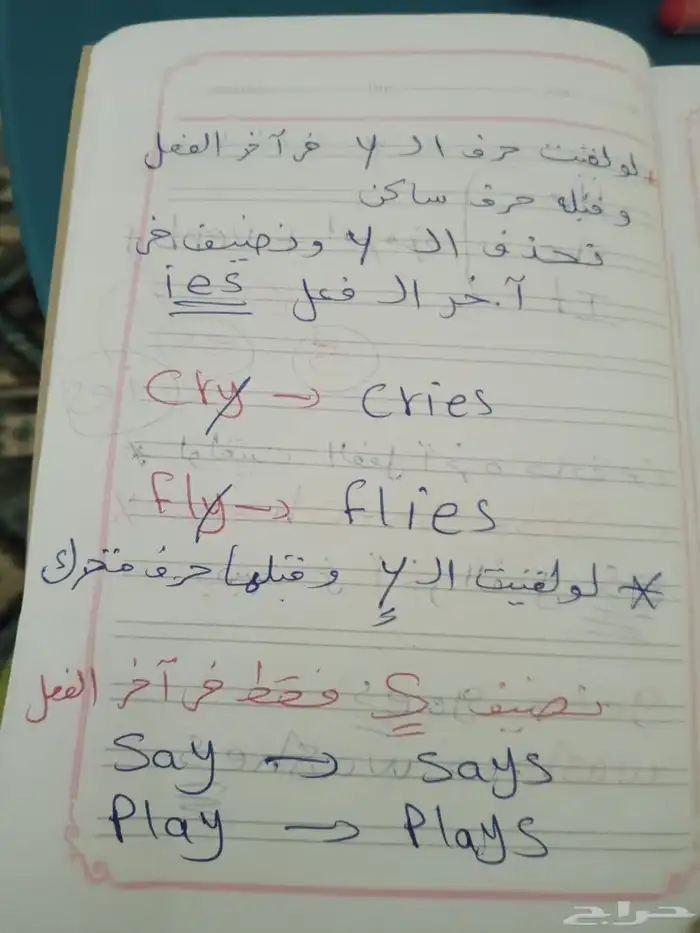 لو لقيت حرف الـ y في آخر الفعل
وقبله حرف ساكن
نحذف الـ y ونضيف في
آخر الـ فعل ies
Cry → cries
fly → flies
* لو لقيت الـ y وقبلها حرف متحرك
نضيف S فقط في آخر الفعل
Say → says
Play → Plays
حراج